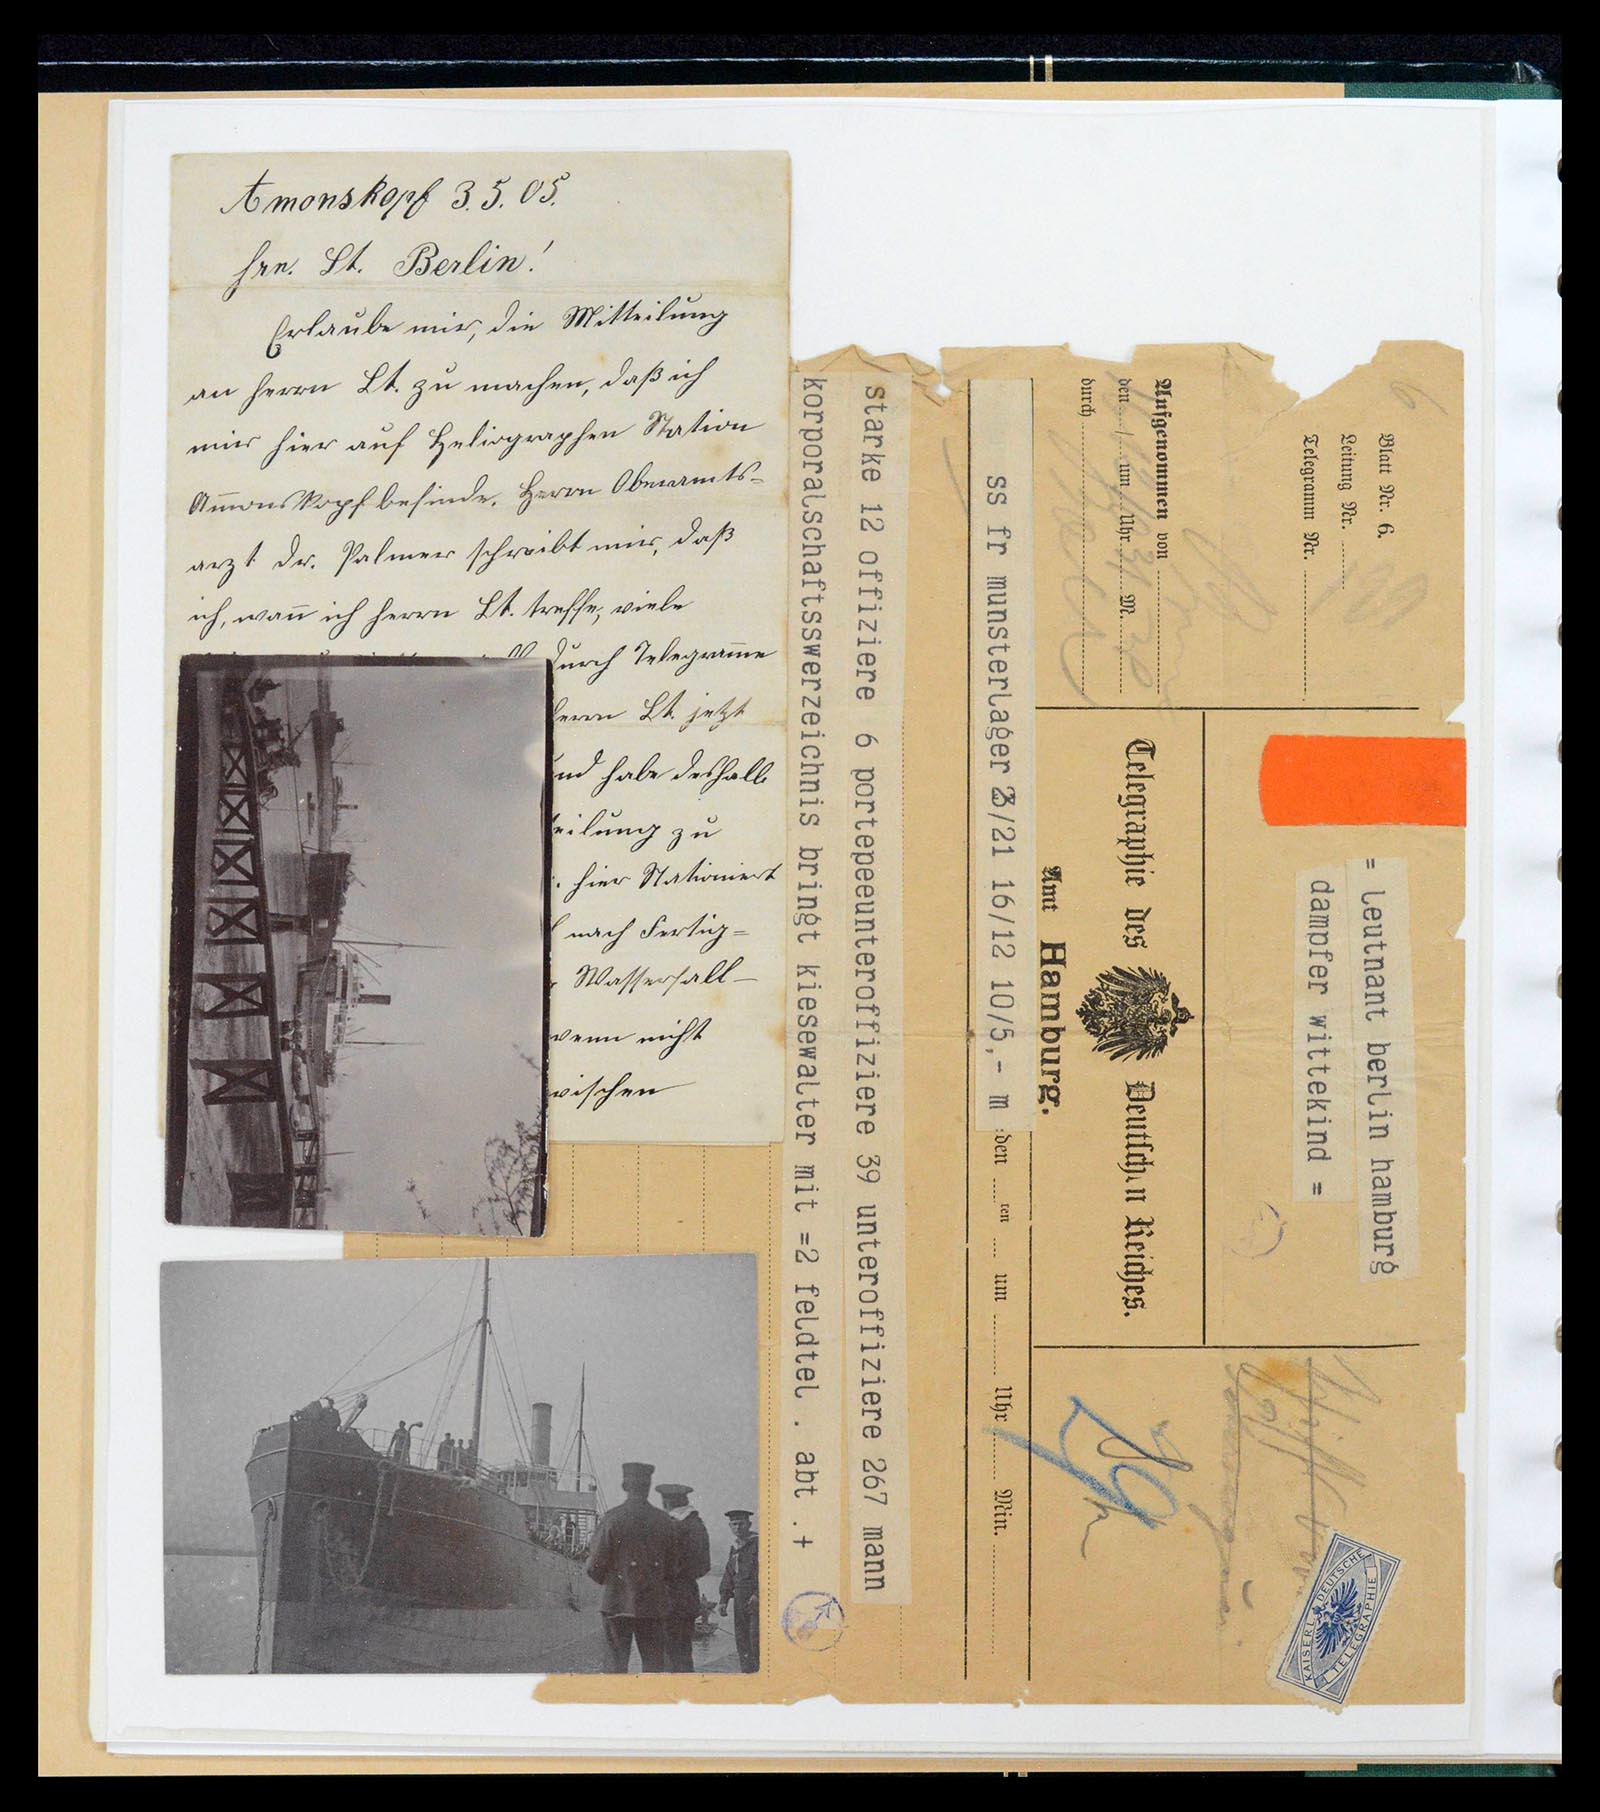 Amonskopf 3.5.05.
Hrn. Lt. Berlin!
Erlaube mir, die Mitteilung
an Herrn Lt. zu machen, daß ich
mich hier auf Heliographen Station
Am̄onskopf befinde. Herrn Oberamts=
arzt Dr. Palmer schreibt mir, daß
ich, wan̄ ich Herrn Lt. treffe, viele
durch Telegram̄e
Herrn Lt. jetzt
und habe deshalb
teilung zu
hier Stationiert
nach Fertig=
Wasserfall–
wenn nicht
wischen
Blatt Nr. 6.
Leitung Nr.
Telegramm Nr.
Aufgenommen von
den / um Uhr M.
durch
= leutnant berlin hamburg
dampfer wittekind =
Telegraphie des Deutschen Reiches.
Amt Hamburg.
ss fr munsterlager 23/21 16/12 10/5,- m
den ten um Uhr Min.
starke 12 offiziere 6 portepeeunteroffiziere 39 unteroffiziere 267 mann
korporalschaftsswerzeichnis bringt kiesewalter mit =2 feldtel . abt .+
KAISERL. DEUTSCHE
TELEGRAPHIE